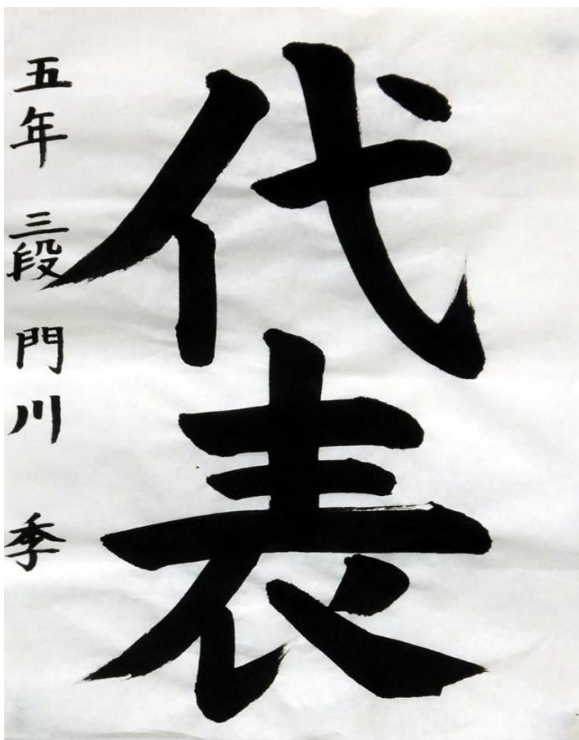 代表
五年 三段 門川 季